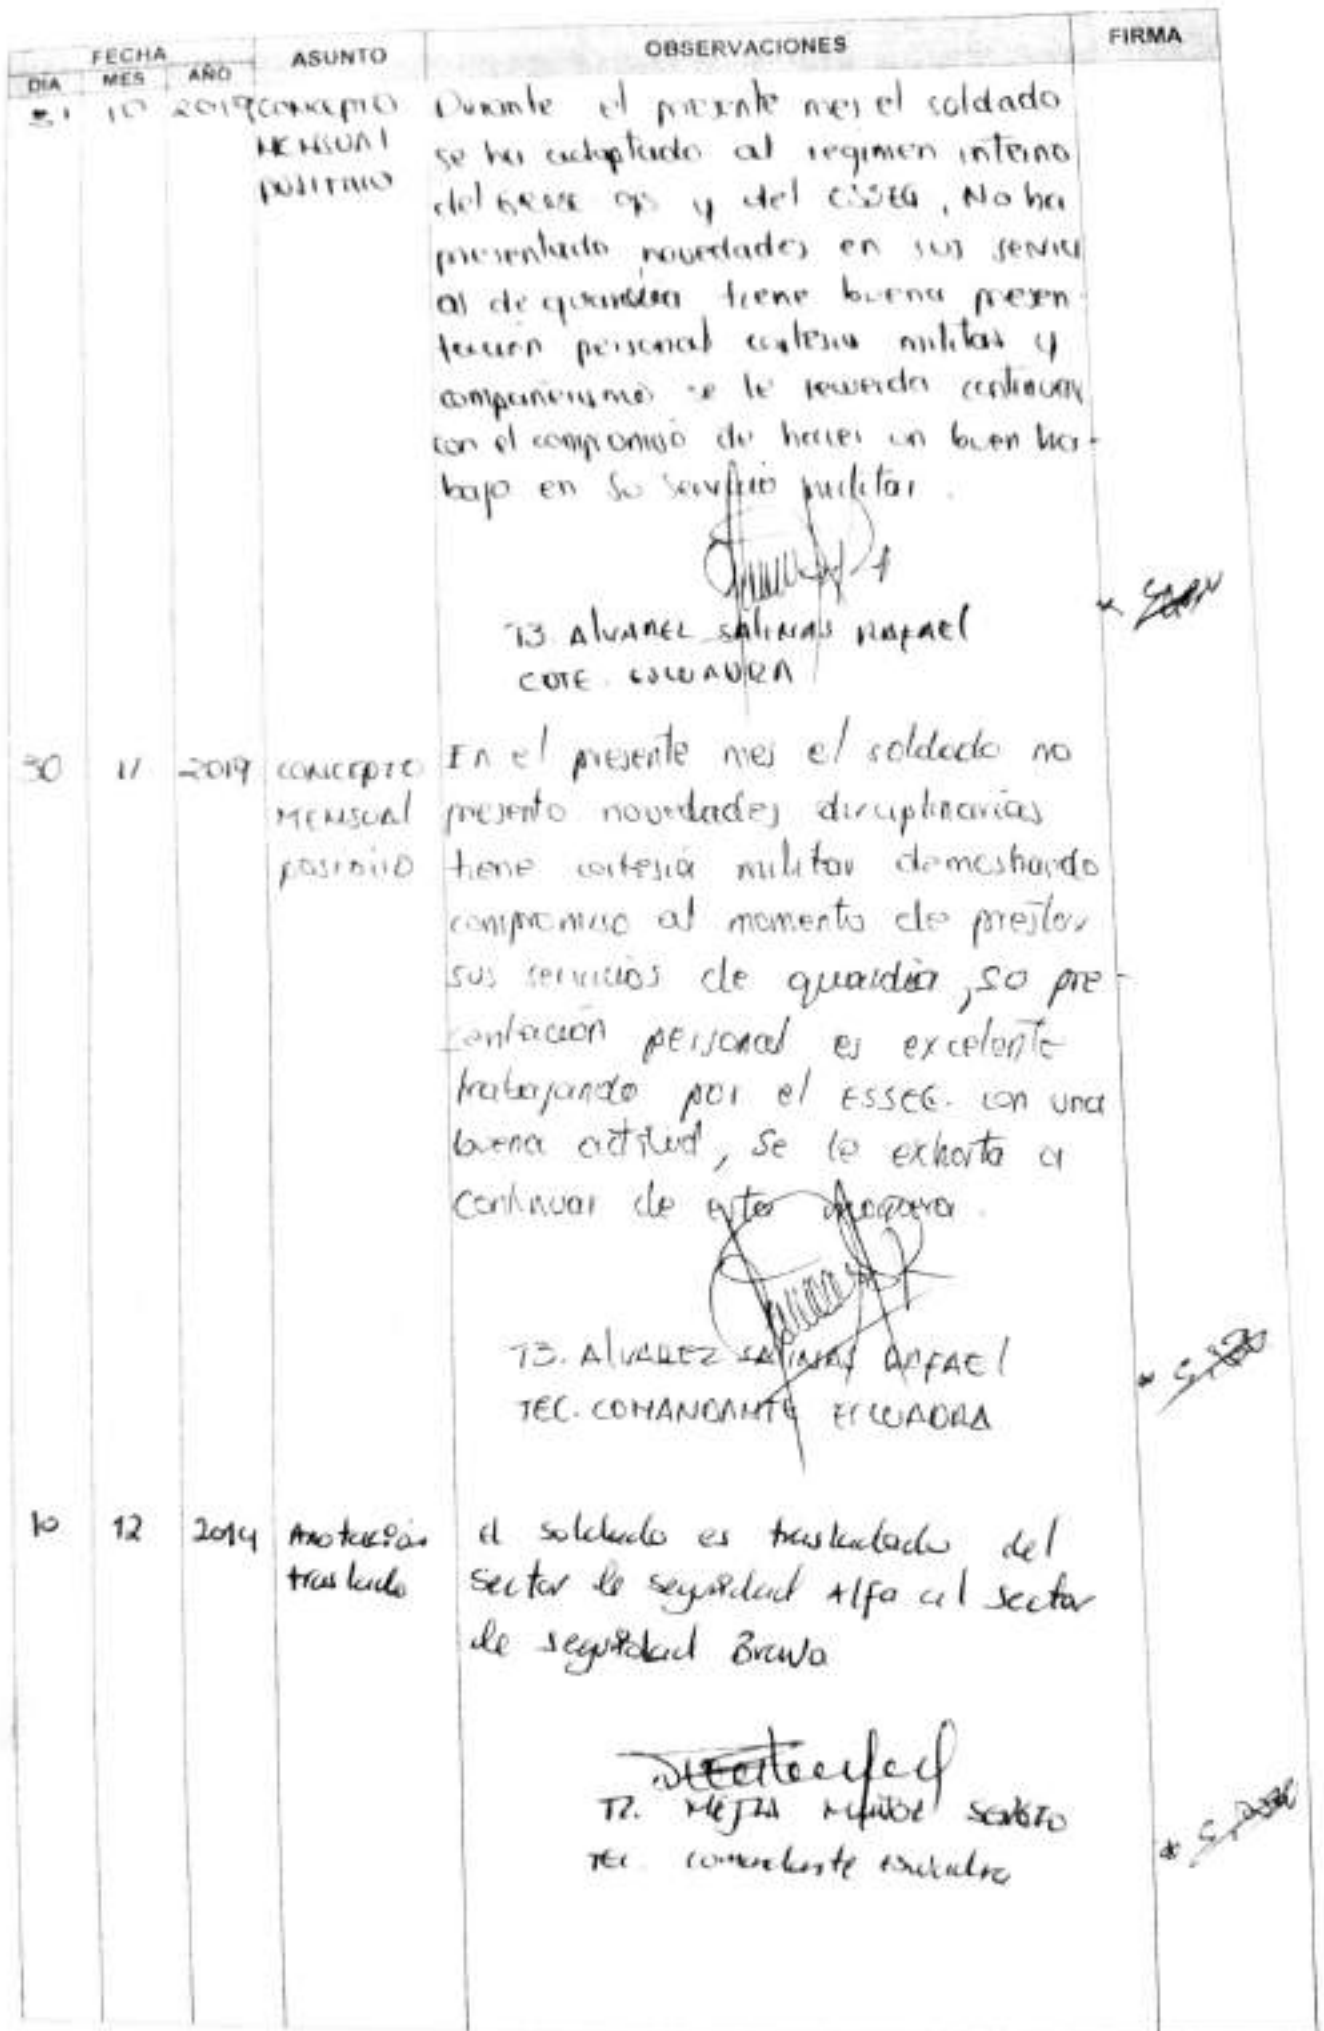 FECHA ASUNTO OBSERVACIONES FIRMA
DÍA MES AÑO
31 10 2019 CONCEPTO Durante el presente mes el soldado
MENSUAL se ha adaptado al regimen interno
POSITIVO del y del ESSEG, No ha
presentado novedades en sus servici
os de guardia tiene buena presen-
tacion personal cortesia militar y
compañerismo se le recuerda continuar
con el compromiso de hacer un buen tra-
bajo en su servicio militar.
T3. Alvarez SALINAS RAFAEl
CDTE. ESCUADRA
30 11 2019 CONCEPTO En el presente mes el soldado no
MENSUAl presento novedades disciplinarias
POSITIVO tiene cortesia militar demostrando
compromiso al momento de prestar
sus servicios de guardia, so pre-
sentacion personal es excelente
trabajando por el ESSEG. con una
buena actitud, se le exhorta a
continuar de esta manera.
T3. AlVAREZ SALINAS RAFAEl
TEC. COMANDANTE ESCUADRA
10 12 2019 Anotación el soldado es trasladado del
traslado sector de seguridad Alfa al sector
de seguridad Bravo
T2. MEJIA MUÑOZ SERGIO
TEC. comandante escuadra